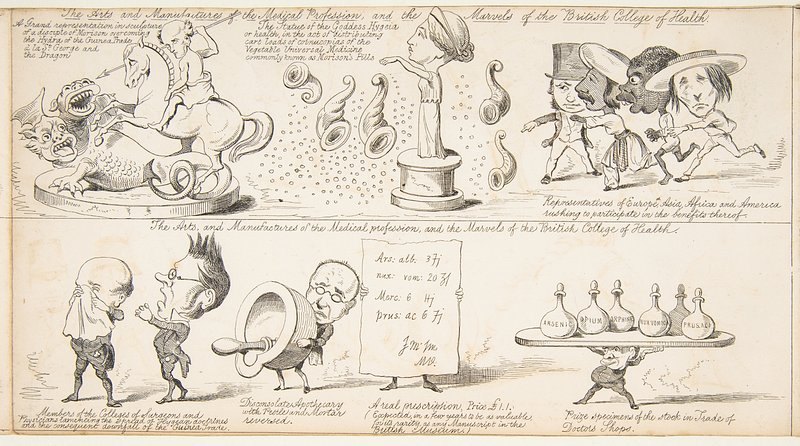 The Arts and Manufactures of the Medical Profession, and the Marvels of the British College of Health.
A Grand representation in sculpture
of a disciple of Morison overcoming
the Hydra of the Guinea Trade
à la St. George and
the Dragon
The Statue of the Goddess Hygeia
or health, in the act of distributing
cart loads of cornucopias of the
Vegetable Universal Medicine
commonly known as Morison's Pills
Representatives of Europe, Asia, Africa and America
rushing to participate in the benefits thereof.
The Arts, and Manufactures of the Medical profession, and the Marvels of the British College of Health.
Ars: alb: 3fj
nux: vom: 20
Merc: 6
prus: ac 6
ARSENIC
OPIUM
NUX VOMICA
PRUS. ACID
Members of the Colleges of Surgeons and
Physicians lamenting the spread of Hygeian doctrines
and the consequent downfall of the Guinea Trade.
Disconsolate Apothecary
with Pestle and Mortar
reversed.
A real prescription, Price £1.1.
(Expected, in a few years to be as valuable
for its rarity, as any Manuscript in the
British Museum.)
Prize specimens of the stock in Trade of
Doctors Shops.